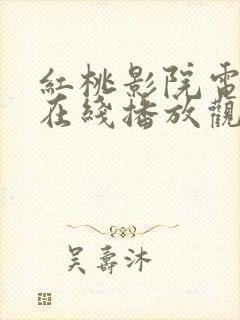 紅桃影院電
在綫播放觀
吴壽沐